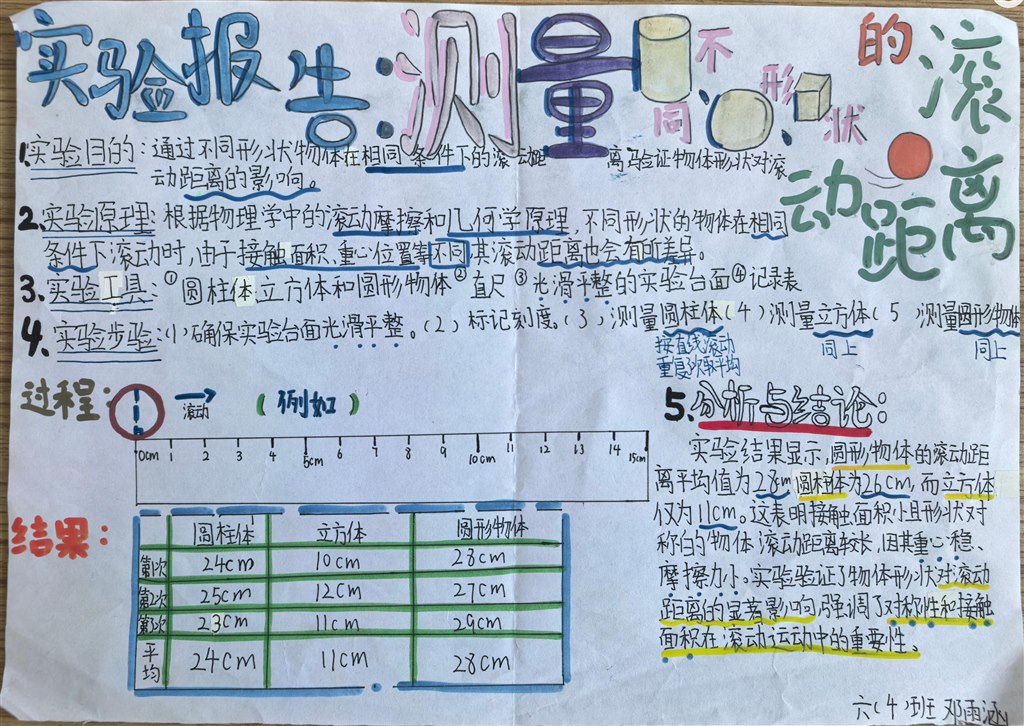 实验报告:测量不同形状的滚动距离
1.实验目的:通过不同形状物体在相同条件下的滚动距离验证物体形状对滚
动距离的影响。
2.实验原理:根据物理学中的滚动摩擦和几何学原理,不同形状的物体在相同
条件下滚动时,由于接触面积、重心位置等不同,其滚动距离也会有所差异。
3.实验工具:①圆柱体、立方体和圆形物体②直尺③光滑平整的实验台面④记录表
4.实验步验:(1)确保实验台面光滑平整。(2)标记刻度。(3)测量圆柱体(4)测量立方体(5)测量圆形物体
按直线滚动 同上 同上
重复3次取平均
过程:
滚动 (例如)
0cm 1 2 3 4 5cm 6 7 8 9 10cm 11 12 13 14 15cm
结果:
圆柱体 立方体 圆形物体
第1次 24cm 10cm 28cm
第2次 25cm 12cm 27cm
第3次 23cm 11cm 29cm
平均 24cm 11cm 28cm
5.分析与结论:
实验结果显示,圆形物体的滚动距
离平均值为28cm,圆柱体为26cm,而立方体
仅为11cm。这表明接触面积小且形状对
称的物体滚动距离较长,因其重心稳、
摩擦力小。实验验证了物体形状对滚动
距离的显著影响,强调了对称性和接触
面积在滚动运动中的重要性。
六(4)班 邓雨涵